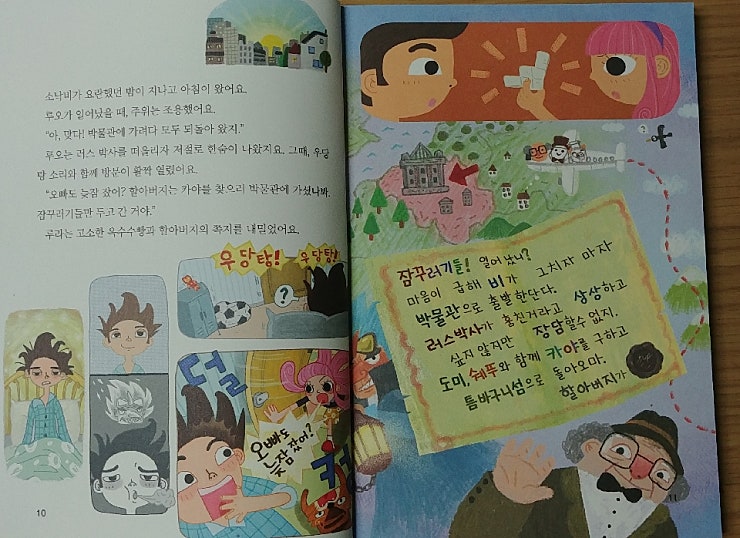 소낙비가 요란했던 밤이 지나고 아침이 왔어요.
루오가 일어났을 때, 주위는 조용했어요.
“아, 맞다! 박물관에 가려다 모두 되돌아 왔지.”
루오는 러스 박사를 떠올리자 저절로 한숨이 나왔지요. 그때, 우당
탕 소리와 함께 방문이 활짝 열렸어요.
“오빠도 늦잠 잤어? 할아버지는 카야를 찾으러 박물관에 가셨나봐.
잠꾸러기들만 두고 간 거야.”
루라는 고소한 옥수수빵과 할아버지의 쪽지를 내밀었어요.
우당탕!
우당탕!
?
덜
오빠도
늦잠 잤어?
10
?
잠꾸러기들! 일어났니?
마음이 급해 비가 그치자 마자
박물관으로 출발한단다.
러스박사가 훔친거라고 상상하고
싶지 않지만 장담할수 없지.
도미, 쉬푸와 함께 카야를 구하고
틈바구니섬으로 돌아오마.
할아버지가